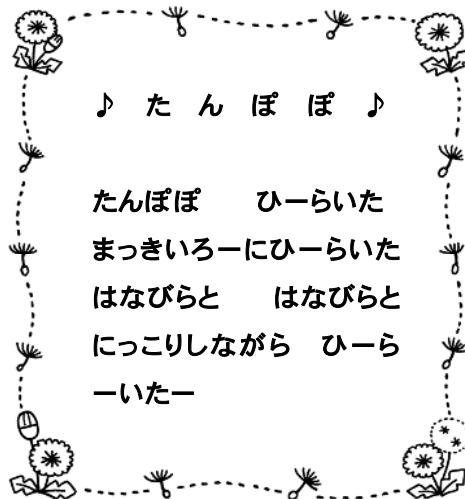 ♪ た ん ぽ ぽ ♪
たんぽぽ　　ひーらいた
まっきいろーにひーらいた
はなびらと　　はなびらと
にっこりしながら　ひーら
ーいたー